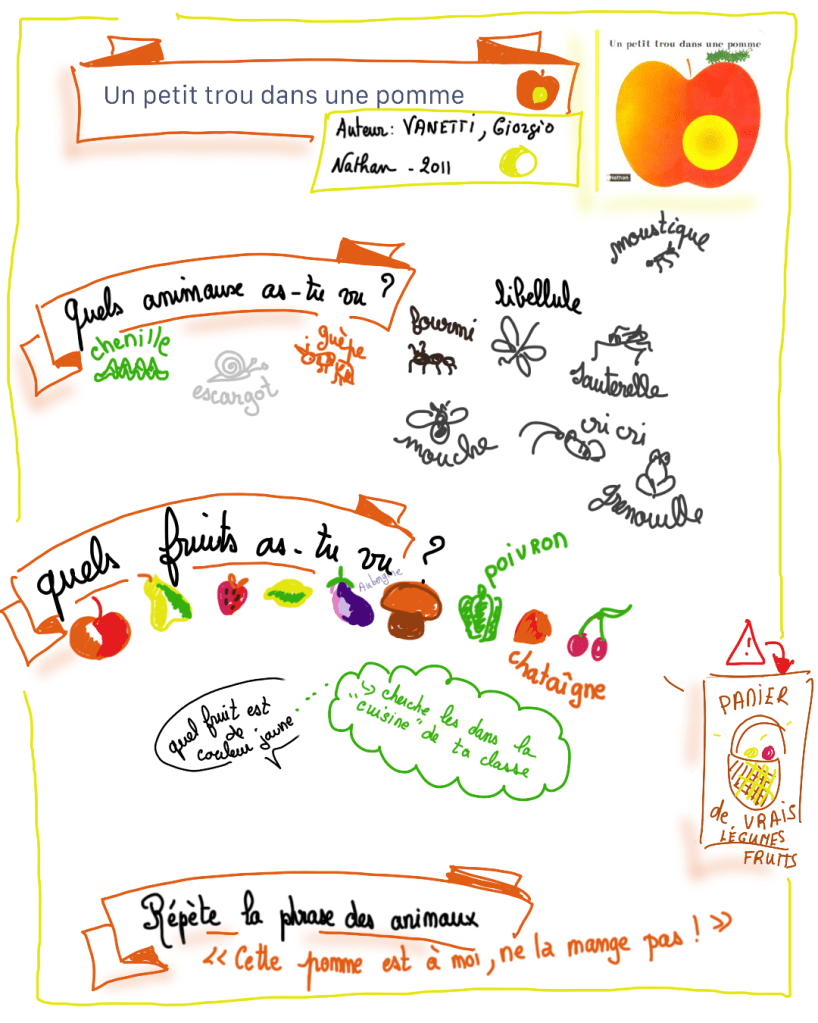 Un petit trou dans une pomme
Auteur: VANETTI, Giorgio
Nathan - 2011
Un petit trou dans une pomme
Nathan
moustique
Quels animause as-tu vu ?
chenille
escargot
guêpe
fourmi
libellule
Sauterelle
mouche
cri cri
Grenouille
quels fruits as-tu vu ?
Aubergine
poivron
chataîgne
quel fruit est
de
couleur jaune
↳ cherche les dans la
"cuisine" de ta classe
PANIER
de VRAIS
LÉGUMES
FRUITS
Répète la phrase des animaux
<< Cette pomme est à moi, ne la mange pas ! >>